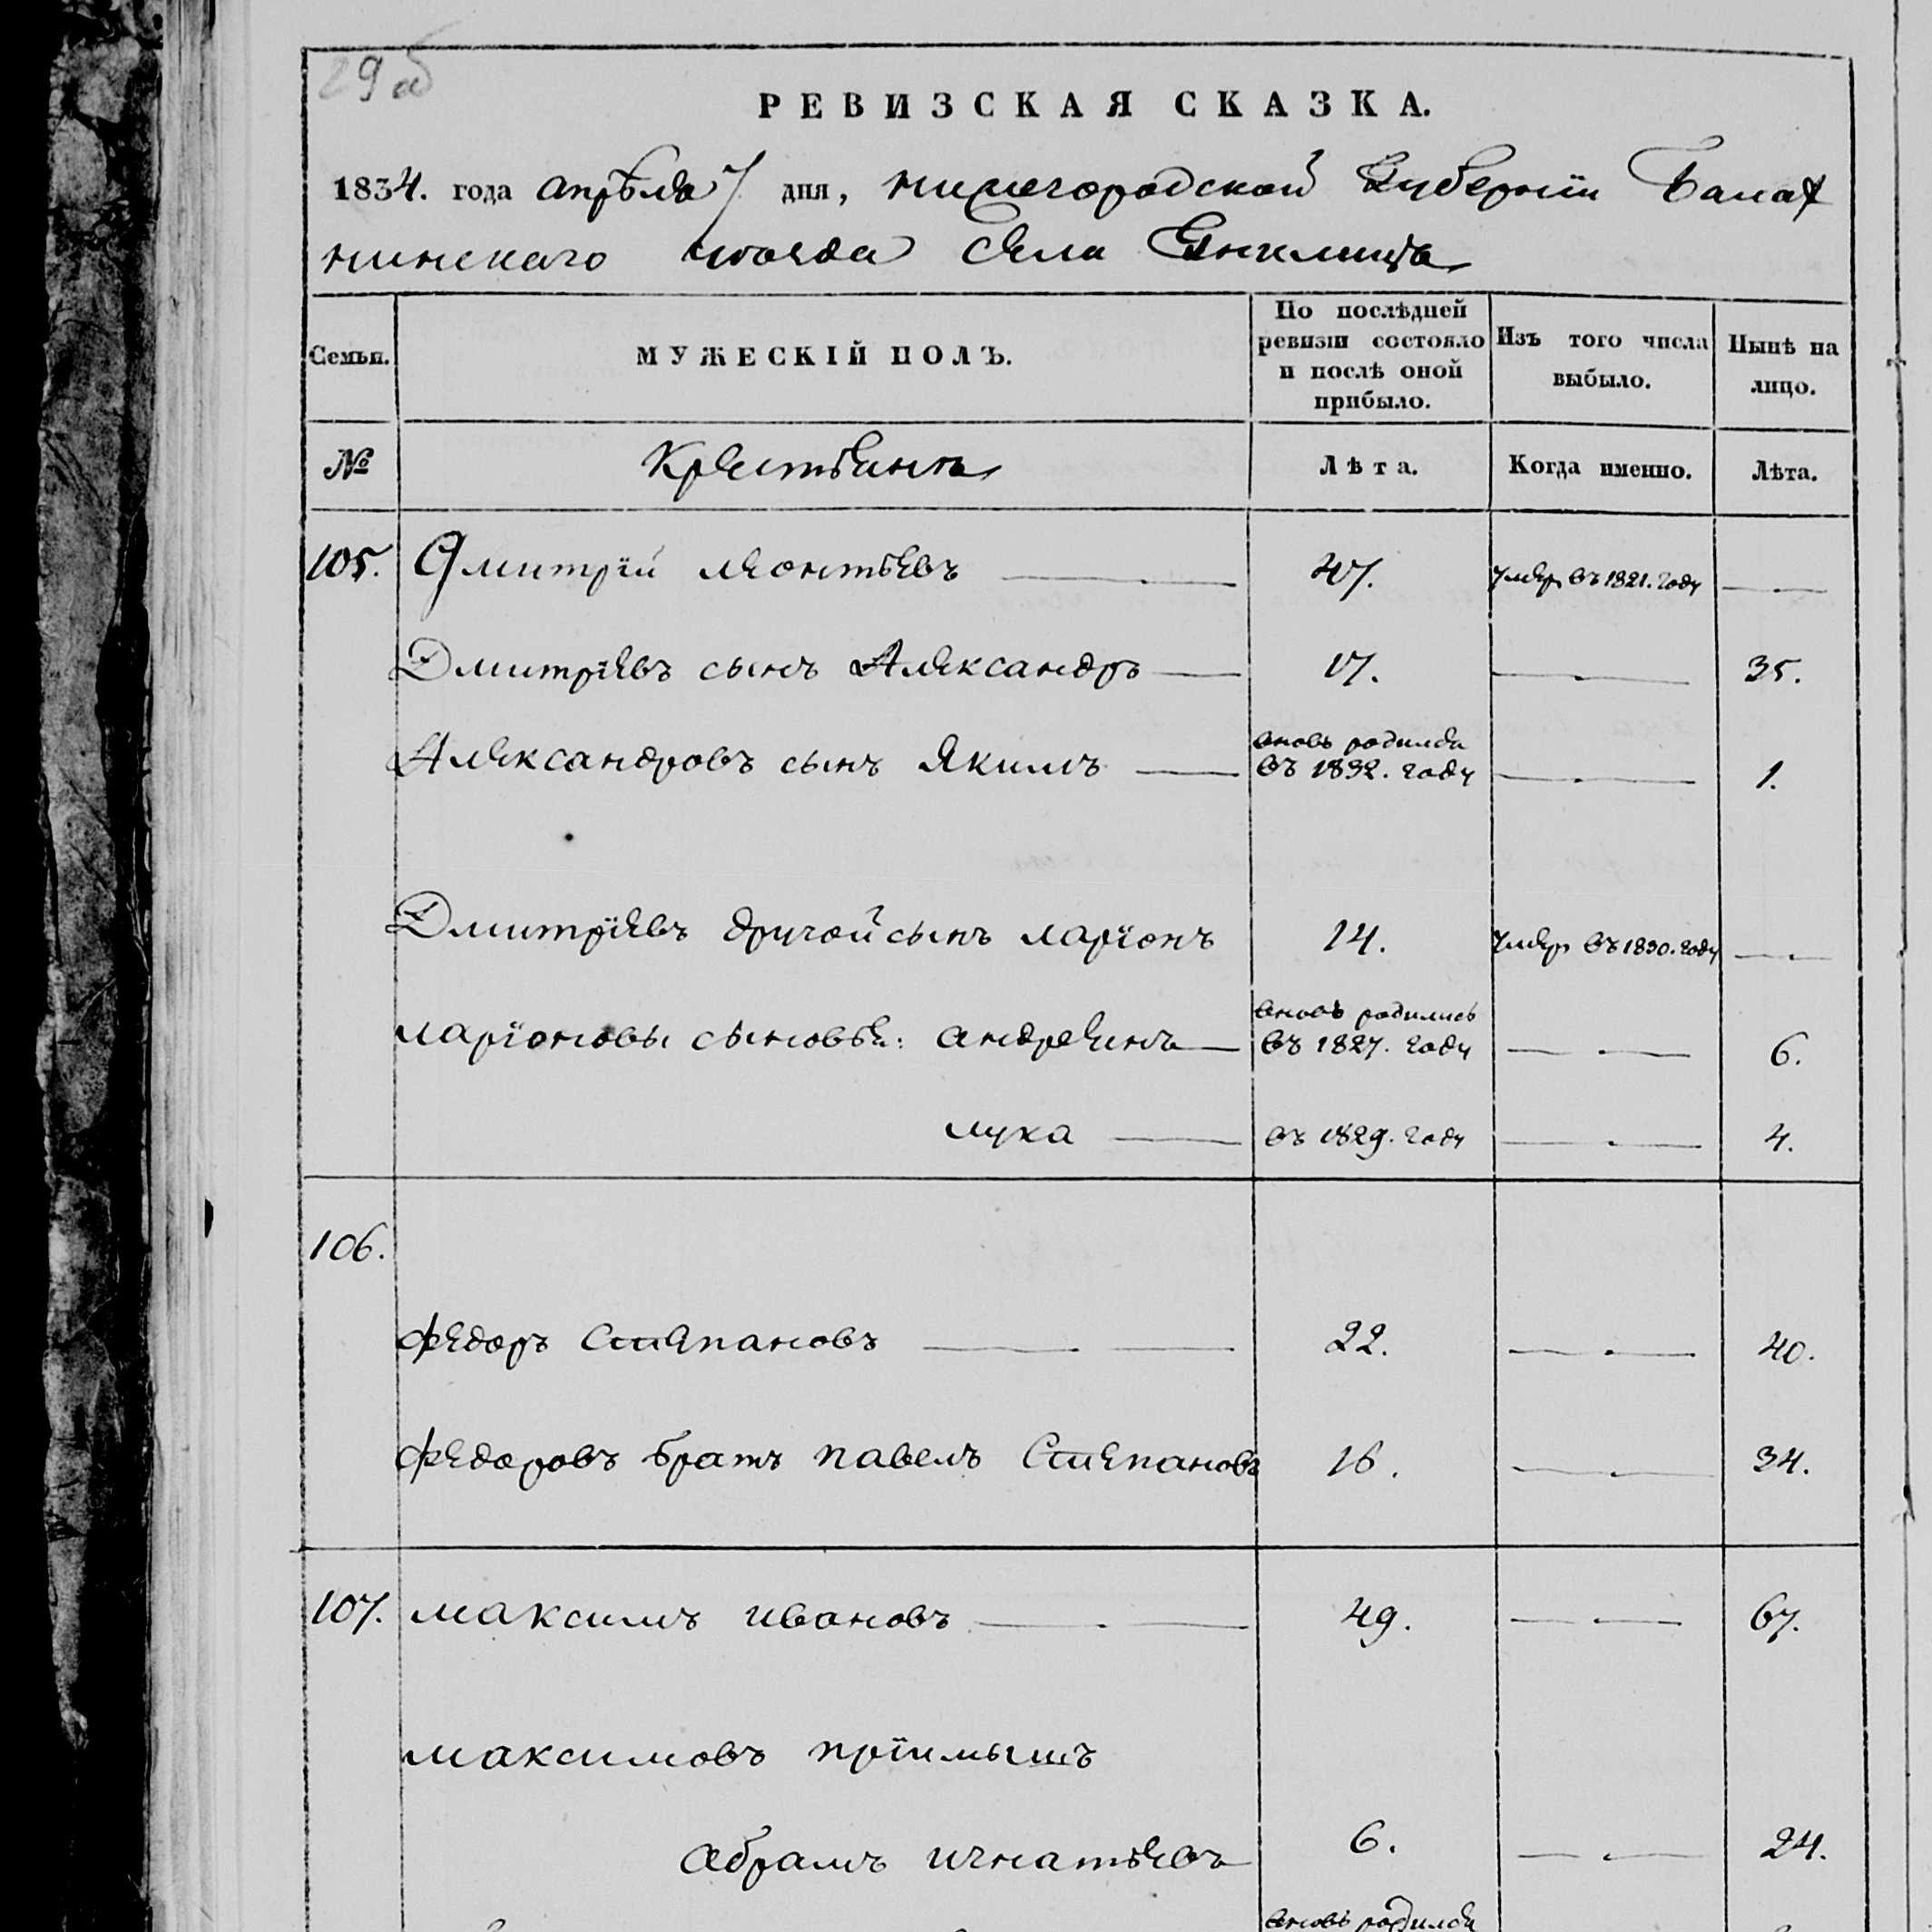 29 об
РЕВИЗСКАЯ СКАЗКА.
1834. года апрѣля 7 дня, нижегородской Губерніи Балах
нинскаго уезда села
Семьи.
МУЖЕСКІЙ ПОЛЪ.
По послѣдней ревизіи состояло и послѣ оной прибыло.
Изъ того числа выбыло.
Нынѣ на лицо.
№ Крестьянъ Лѣта. Когда именно. Лѣта.
105. Дмитрій леонтьевъ 47. умер въ 1821. году
Дмитріевъ сынъ Александръ 17. 35.
Александровъ сынъ Якимъ вновь родился въ 1832. году 1.
Дмитріевъ другой сынъ ларіонъ 14. умер въ 1830. году
ларіоновы сыновья: андреянъ вновь родились въ 1827. году 6.
лука въ 1829. году 4.
106.
Федоръ Степановъ 22. 40.
Федоровъ братъ павелъ Степановъ 16. 34.
107. максимъ ивановъ 49. 67.
максимовъ пріимышъ
абрамъ игнатьевъ 6. 24.
вновь родился